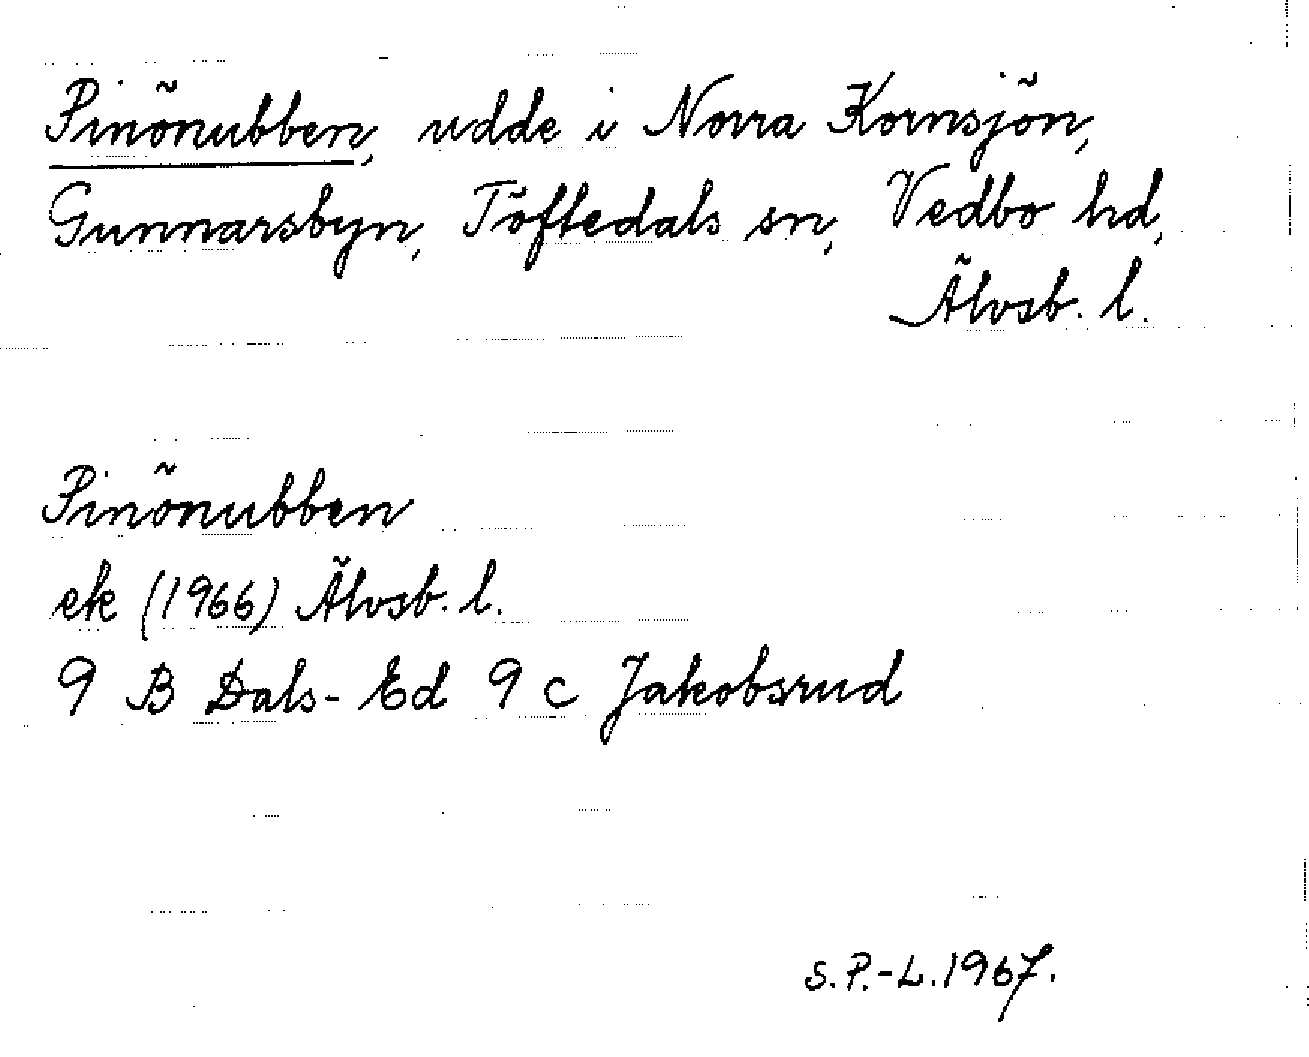 Pinönubben, udde i Norra Kornsjön,
Gunnarsbyn, Töftedals sn, Vedbo hd,
Älvsb. l.
Pinönubben
ek (1966) Älvsb. l.
9 B Dals-Ed 9 c Jakobsrud
S.P.-L. 1967.